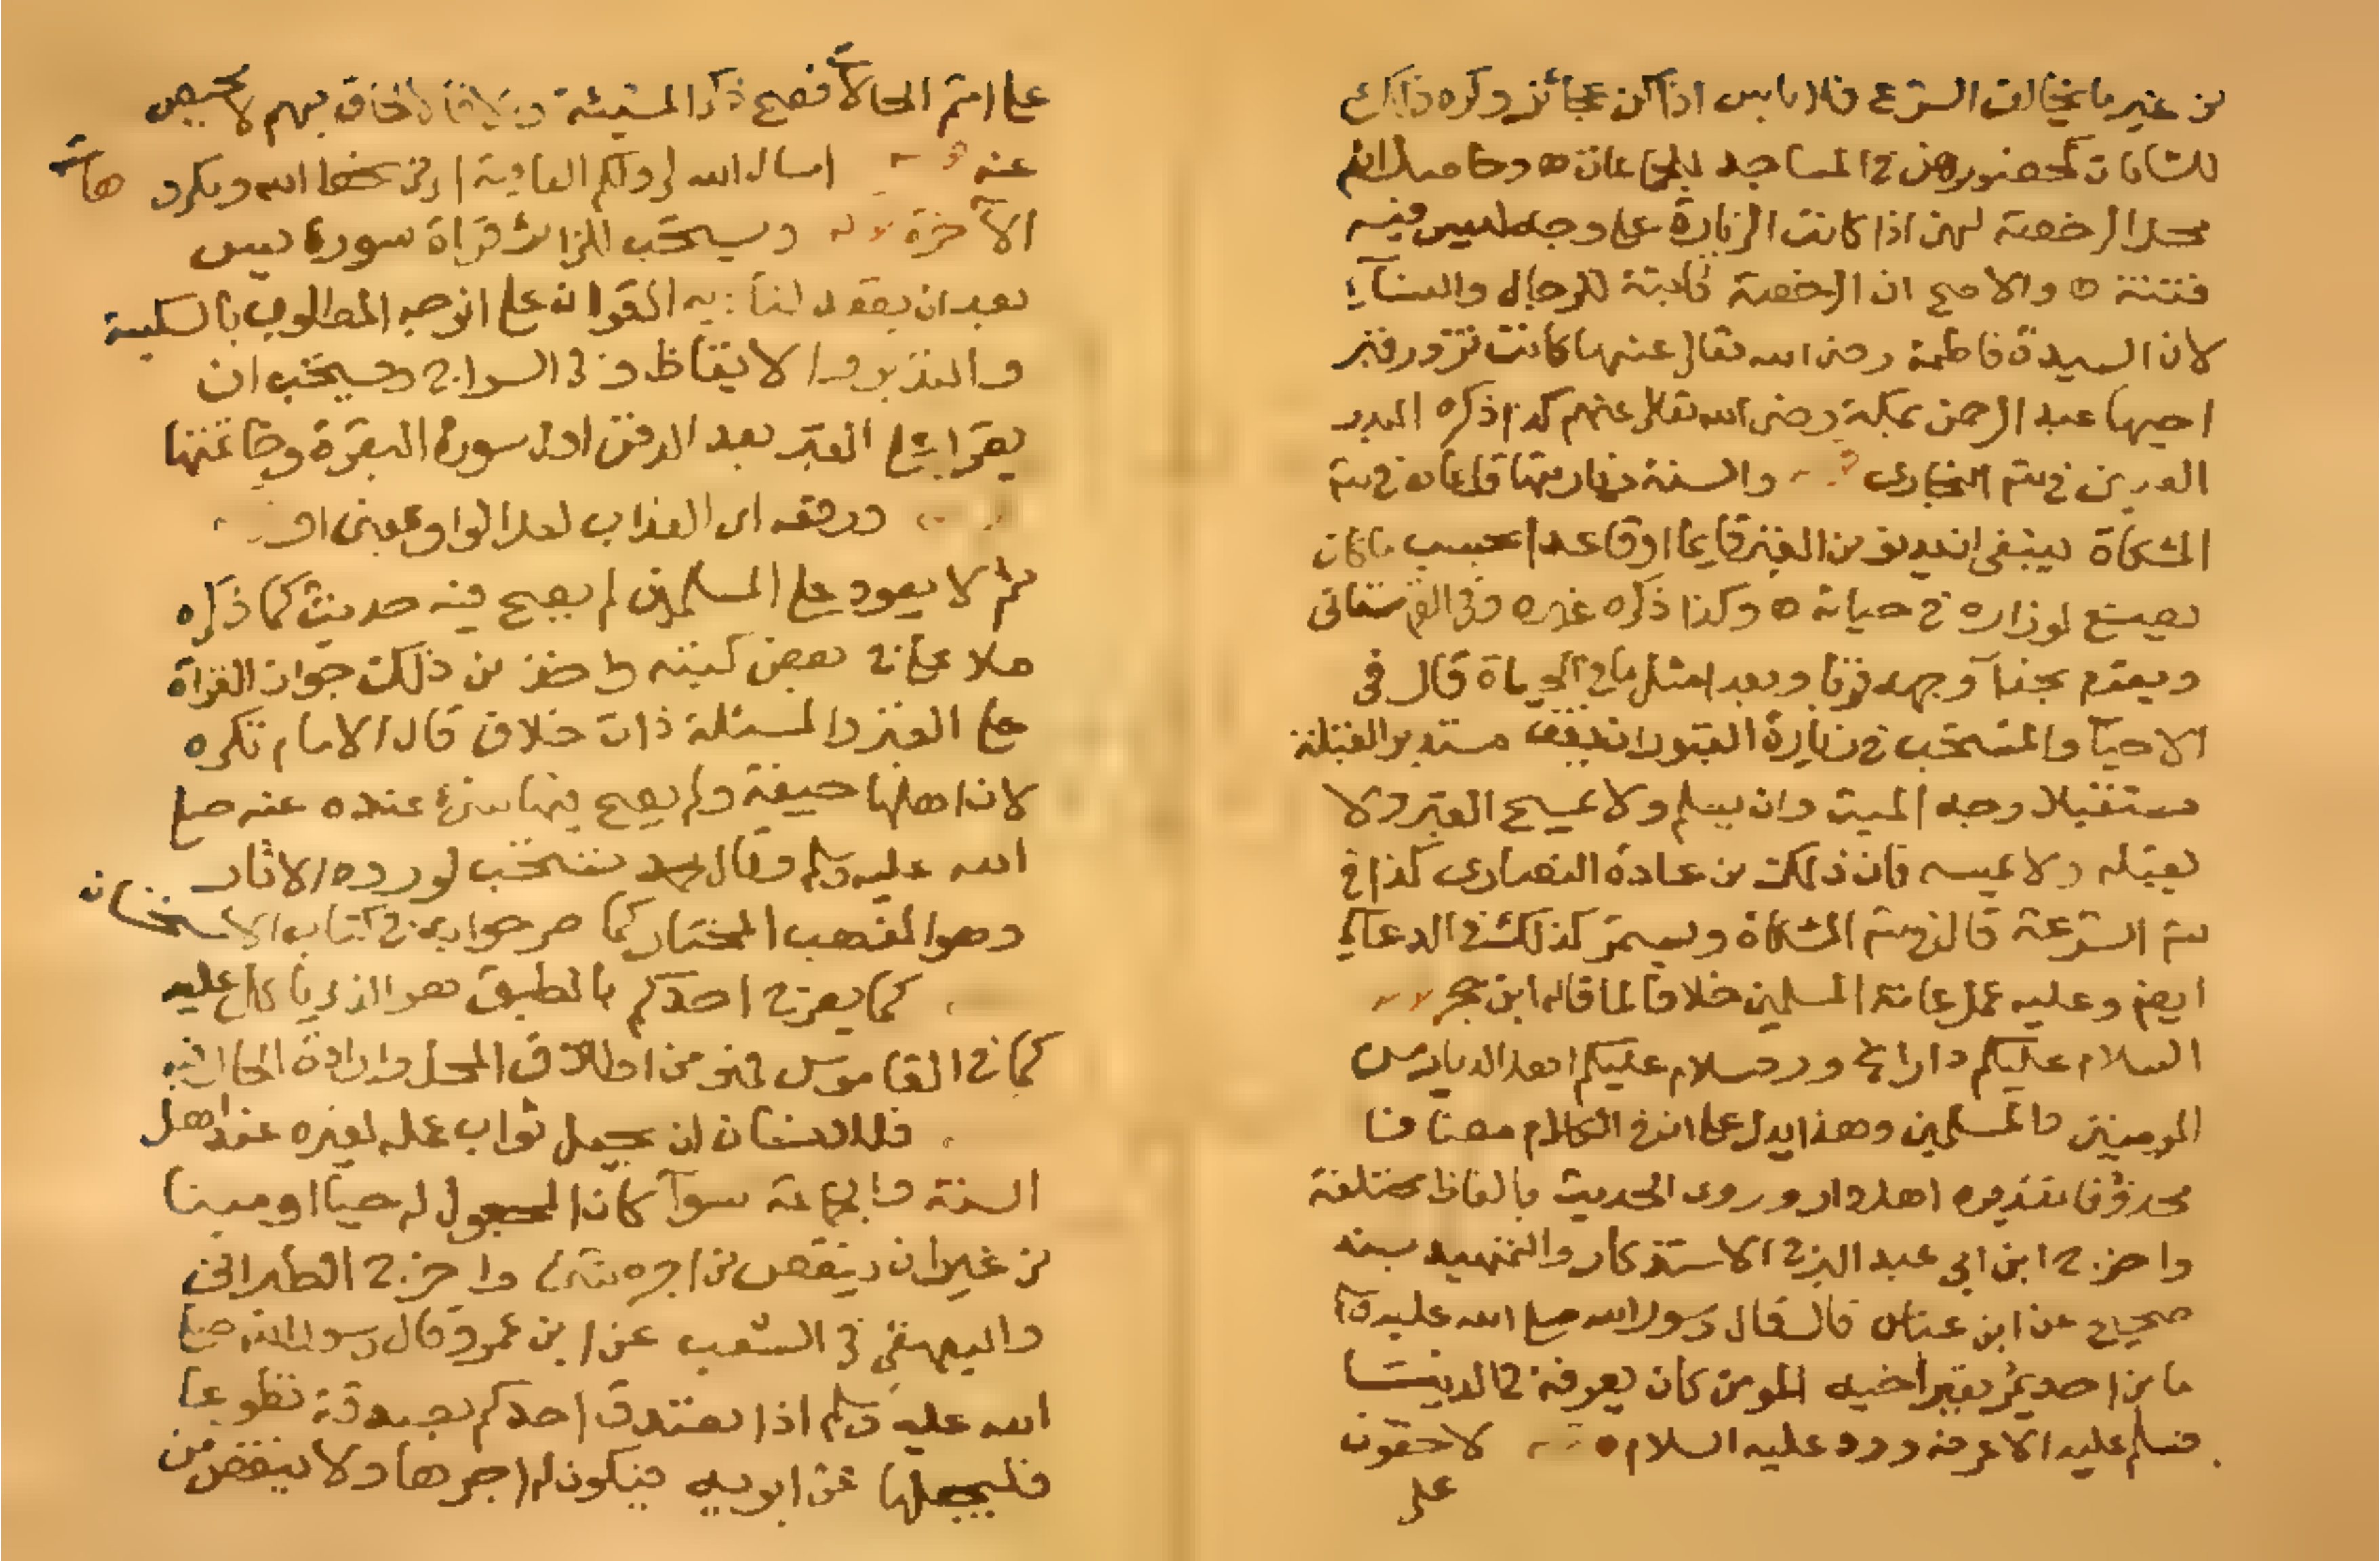 من غير ما يخالف الشرع فلا باس اذا كن عجائز وكره ذلك
للشابات كحضورهن في المساجد للجماعات ٥ وحاصله ان
محل الرخصة لهن اذا كانت الزيارة على وجه ليس فيه
فتنة ٥ والاصح ان الرخصة ثابتة للرجال والنساء
لان السيدة فاطمة رضى الله تعالى عنها كانت تزور قبر
عبد الرحمن بمكة رضى الله تعالى عنهم كذا ذكره البدر
العينى في شم البخارى والسنة زيارتها قائما في شم
المشكاة ينبغى ان يدنو من القبر قايما او قاعدا بحسب ما كان
يصنع لو زاره في حياته ٥ وكذا ذكره غيره وفى القهستانى
ويقوم بحذآ وجهه قربا وبعد امثل ما في الحياة قال فى
الاحيآ والمستحب في زيارة القبور ان يقف مستدبر القبلة
مستقبلا وجه الميت وان يسلم ولا يمسح القبر ولا
يقبله ولا يمسه فان ذلك من عادة النصارى كذا في
شم الشرعة قال في شم المشكاة كذلك في الدعاء
ايض وعليه عمل عامة المسلمين خلافا لما قاله ابن حجر
السلام عليكم دار الخ وورد سلام عليكم اهل الديار من
المومنين والمسلمين وهذا يدل على ان في الكلام مضافا
محذوفا تقديره اهل دار وروى الحديث بالفاظ مختلفة
واخرج ابن ابى عبد البر في الاستذكار والتمهيد بسند
صحيح عن ابن عباس قال قال رسول الله صلى الله عليه
ما من احد يمر بقبر اخيه المومن كان يعرفه في الدنيا
فسلم عليه الا عرفه ورد عليه السلام ٥ لاحقون
على
على اتم الحالات فصح ذكر المشيئة لهم لا محيص
عنه اسال الله لى ولكم العافية
الآخرة ويستحب للزائر قراة سورة يس
القران على الوجه المطلوب بالسكينة
والتدبر والاتعاظ وفى السراج ويستحب ان
يقرا على القبر بعد الدفن اول سورة البقرة وخاتمتها
ورفعه اى العذاب لعل الواو بمعنى او
ثم لا يعود على المسلمين لم يصح فيه حديث كما ذكره
ملا على في بعض كتبه واخذ من ذلك جواز القراة
على القبر والمسئلة ذات خلاف قال الامام تكره
لان اهلها جيفة ولم يصح فيها شئ عنده عنه صلى
الله عليه وسلم وقال محمد تستحب لورود الاثار
وهو المذهب المختار كما صرحوا به في كتاب الاستحسان
كما يعرج احدكم بالطبق هو الذى يا كل عليه
كما في القاموس فهو من اطلاق المحل وارادة الحال فيه
فللانسان ان يجعل ثواب عمله لغيره عند اهل
السنة والجماعة سوآ كان المجعول له حيا او ميتا
من غير ان ينقص من اجره شئ واخرج الطبرانى
والبيهقى فى الشعب عن ابن عمرو قال رسول الله صلى
الله عليه وسلم اذا تصدق احدكم بصدقة تطوعا
فليجعلها عن ابويه فيكون لهم اجرها ولا ينقص من